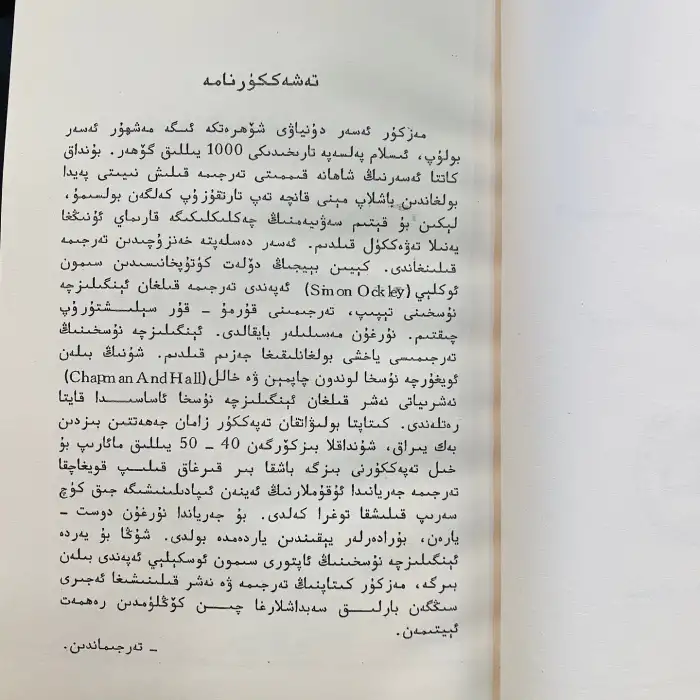 تەشەككۈرنامە
مەزكۇر ئەسەر دۇنياۋى شۆھرەتكە ئىگە مەشھۇر ئەسەر
بولۇپ، ئىسلام پەلسەپە تارىخىدىكى 1000 يىللىق گۆھەر. بۇنداق
كاتتا ئەسەرنىڭ شاھانە قىممىتى تەرجىمە قىلىش نىيىتى پەيدا
بولغاندىن باشلاپ مېنى قانچە تەپ تارتقۇزۇپ كەلگەن بولسىمۇ،
لېكىن بۇ قېتىم سەۋىيەمنىڭ چەكلىكلىكىگە قارىماي ئۇنىڭغا
يەنىلا تەۋەككۈل قىلدىم. ئەسەر دەسلەپتە خەنزۇچىدىن تەرجىمە
قىلىنغاندى. كېيىن بېيجىڭ دۆلەت كۈتۈپخانىسىدىن سىمون
ئوكلېي (Simon Ockley) ئەپەندى تەرجىمە قىلغان ئېنگىلىزچە
نۇسخىنى تېپىپ، تەرجىمىنى قۇرمۇ - قۇر سېلىشتۇرۇپ
چىقتىم. نۇرغۇن مەسىلىلەر بايقالدى. ئېنگىلىزچە نۇسخىنىڭ
تەرجىمىسى ياخشى بولغانلىقىغا جەزىم قىلدىم. شۇنىڭ بىلەن
ئويغۇرچە نۇسخا لوندون چاپمېن ۋە خالل (Chapman And Hall)
نەشرىياتى نەشر قىلغان ئېنگىلىزچە نۇسخا ئاساسىدا قايتا
رەتلەندى. كىتاپتا بولىۋاتقان تەپەككۇر زامان جەھەتتىن بىزدىن
بەك يىراق، شۇنداقلا بىز كۆرگەن 40 - 50 يىللىق مائارىپ بۇ
خىل تەپەككۇرنى بىزگە باشقا بىر قىرغاق قىلىپ قويغاچقا
تەرجىمە جەريانىدا ئۇقۇملارنىڭ ئەينەن ئىپادىلىنىشىگە جىق كۈچ
سەرىپ قىلىشقا توغرا كەلدى. بۇ جەرياندا نۇرغۇن دوست -
يارەن، بۇرادەرلەر يېقىندىن ياردەمدە بولدى. شۇڭا بۇ يەردە
ئېنگىلىزچە نۇسخىنىڭ ئاپتورى سىمون ئوسكېلېي ئەپەندى بىلەن
بىرگە، مەزكۇر كىتاپنىڭ تەرجىمە ۋە نەشر قىلىنىشىغا ئەجىرى
سىڭگەن بارلىق سەبداشلارغا چىن كۆڭلۈمدىن رەھمەت
ئېيتىمەن.
- تەرجىماندىن.